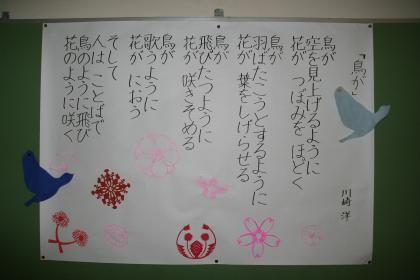 「鳥が」
川崎 洋
鳥が
空を見上げるように
花が つぼみを ほどく
鳥が
羽ばたこうとするように
花が 葉をしげらせる
鳥が
飛びたつように
花が 咲きそめる
鳥が
歌うように
花が におう
そして
人は ことばで
鳥のように飛び
花のように咲く